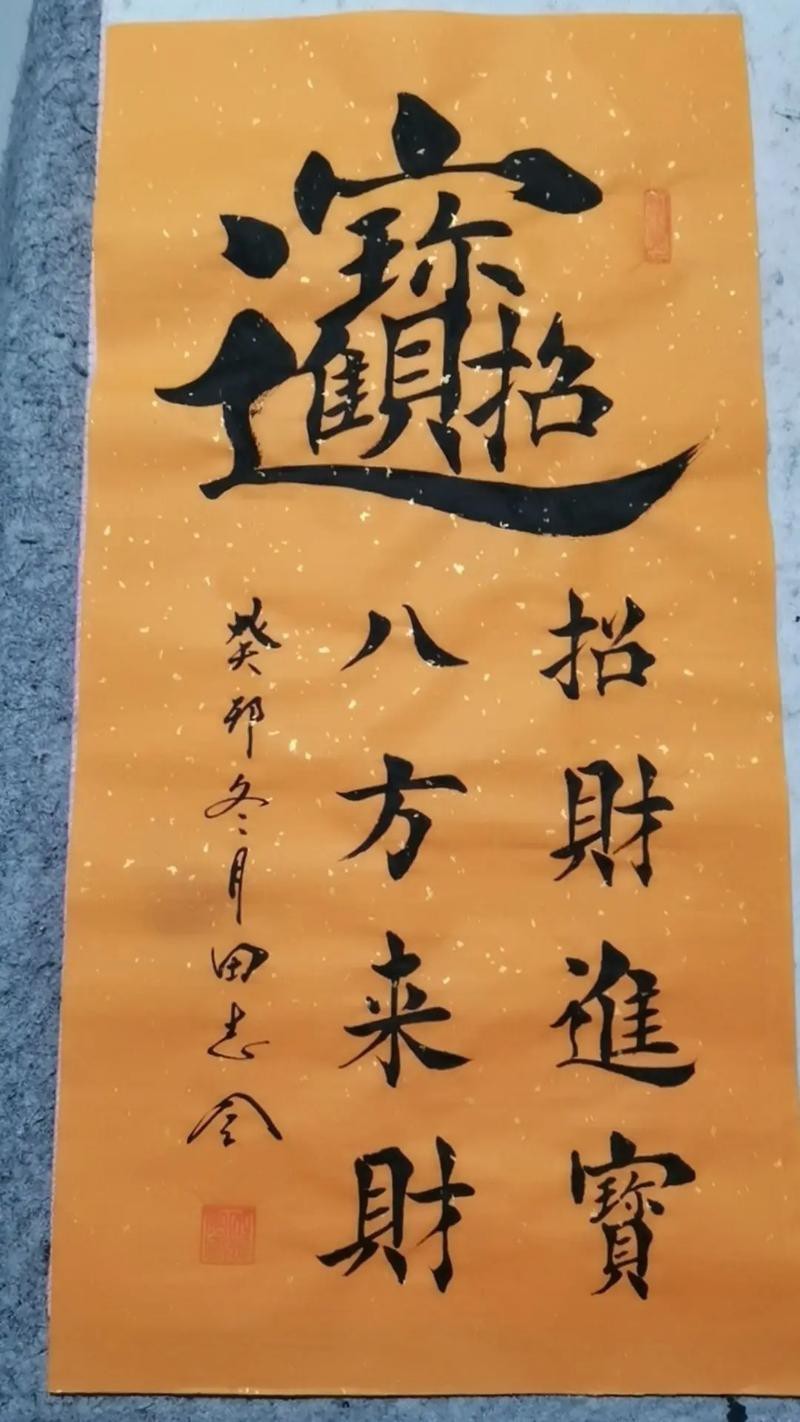 招財進寶
招財進寶
八方来財
癸卯冬月田志